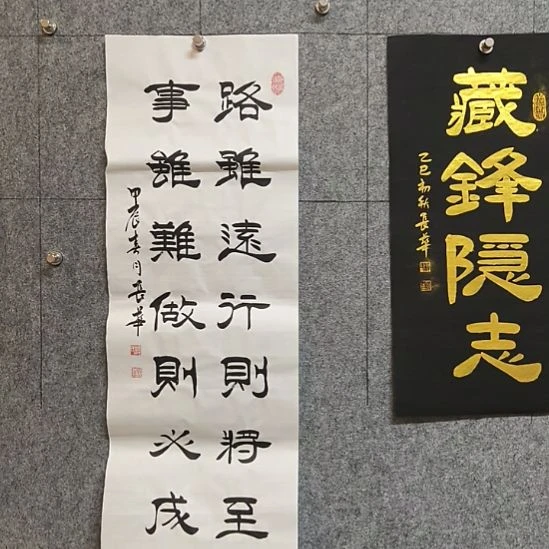 路雖遠行則将至
事雖難做則必成
甲辰春月長華
藏鋒隐志
乙巳初秋長華